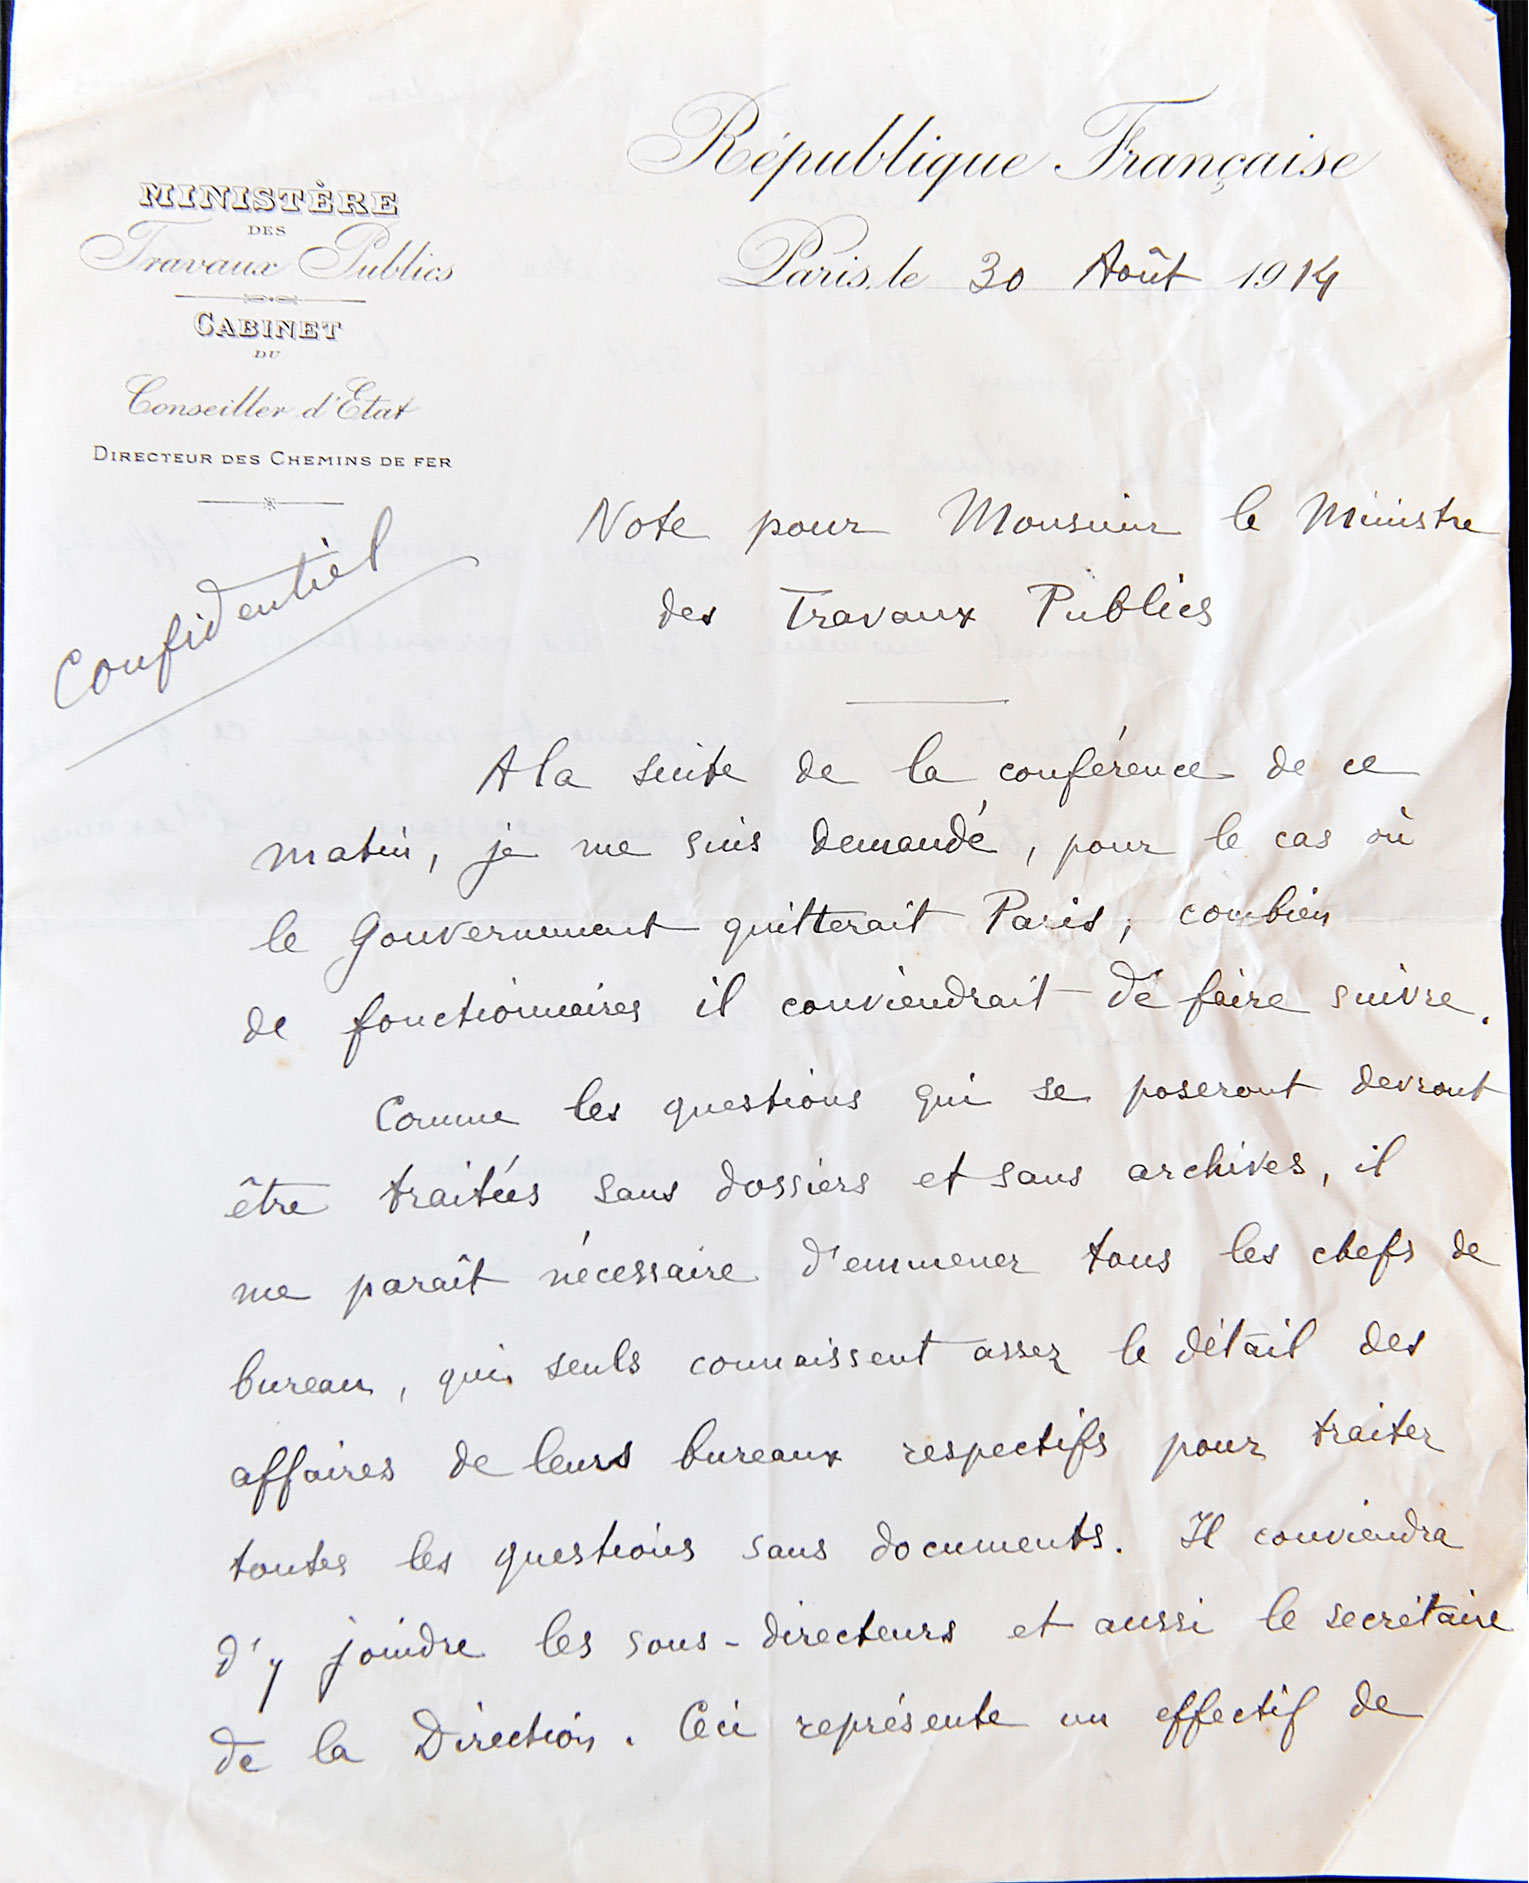 République Française
MINISTÈRE
DES
Travaux Publics
CABINET
DU
Conseiller d'Etat
DIRECTEUR DES CHEMINS DE FER
Paris, le 30 Août 1914
Confidentiel
Note pour Monsieur le Ministre
des Travaux Publics
A la suite de la conférence de ce
matin, je me suis demandé, pour le cas où
le Gouvernement quitterait Paris, combien
de fonctionnaires il conviendrait de faire suivre.
Comme les questions qui se poseront devront
être traitées sans dossiers et sans archives, il
me paraît nécessaire d'emmener tous les chefs de
bureau, qui seuls connaissent assez le détail des
affaires de leurs bureaux respectifs pour traiter
toutes les questions sans documents. Il conviendra
d'y joindre les sous-directeurs et aussi le secrétaire
de la Direction. Ceci représente un effectif de